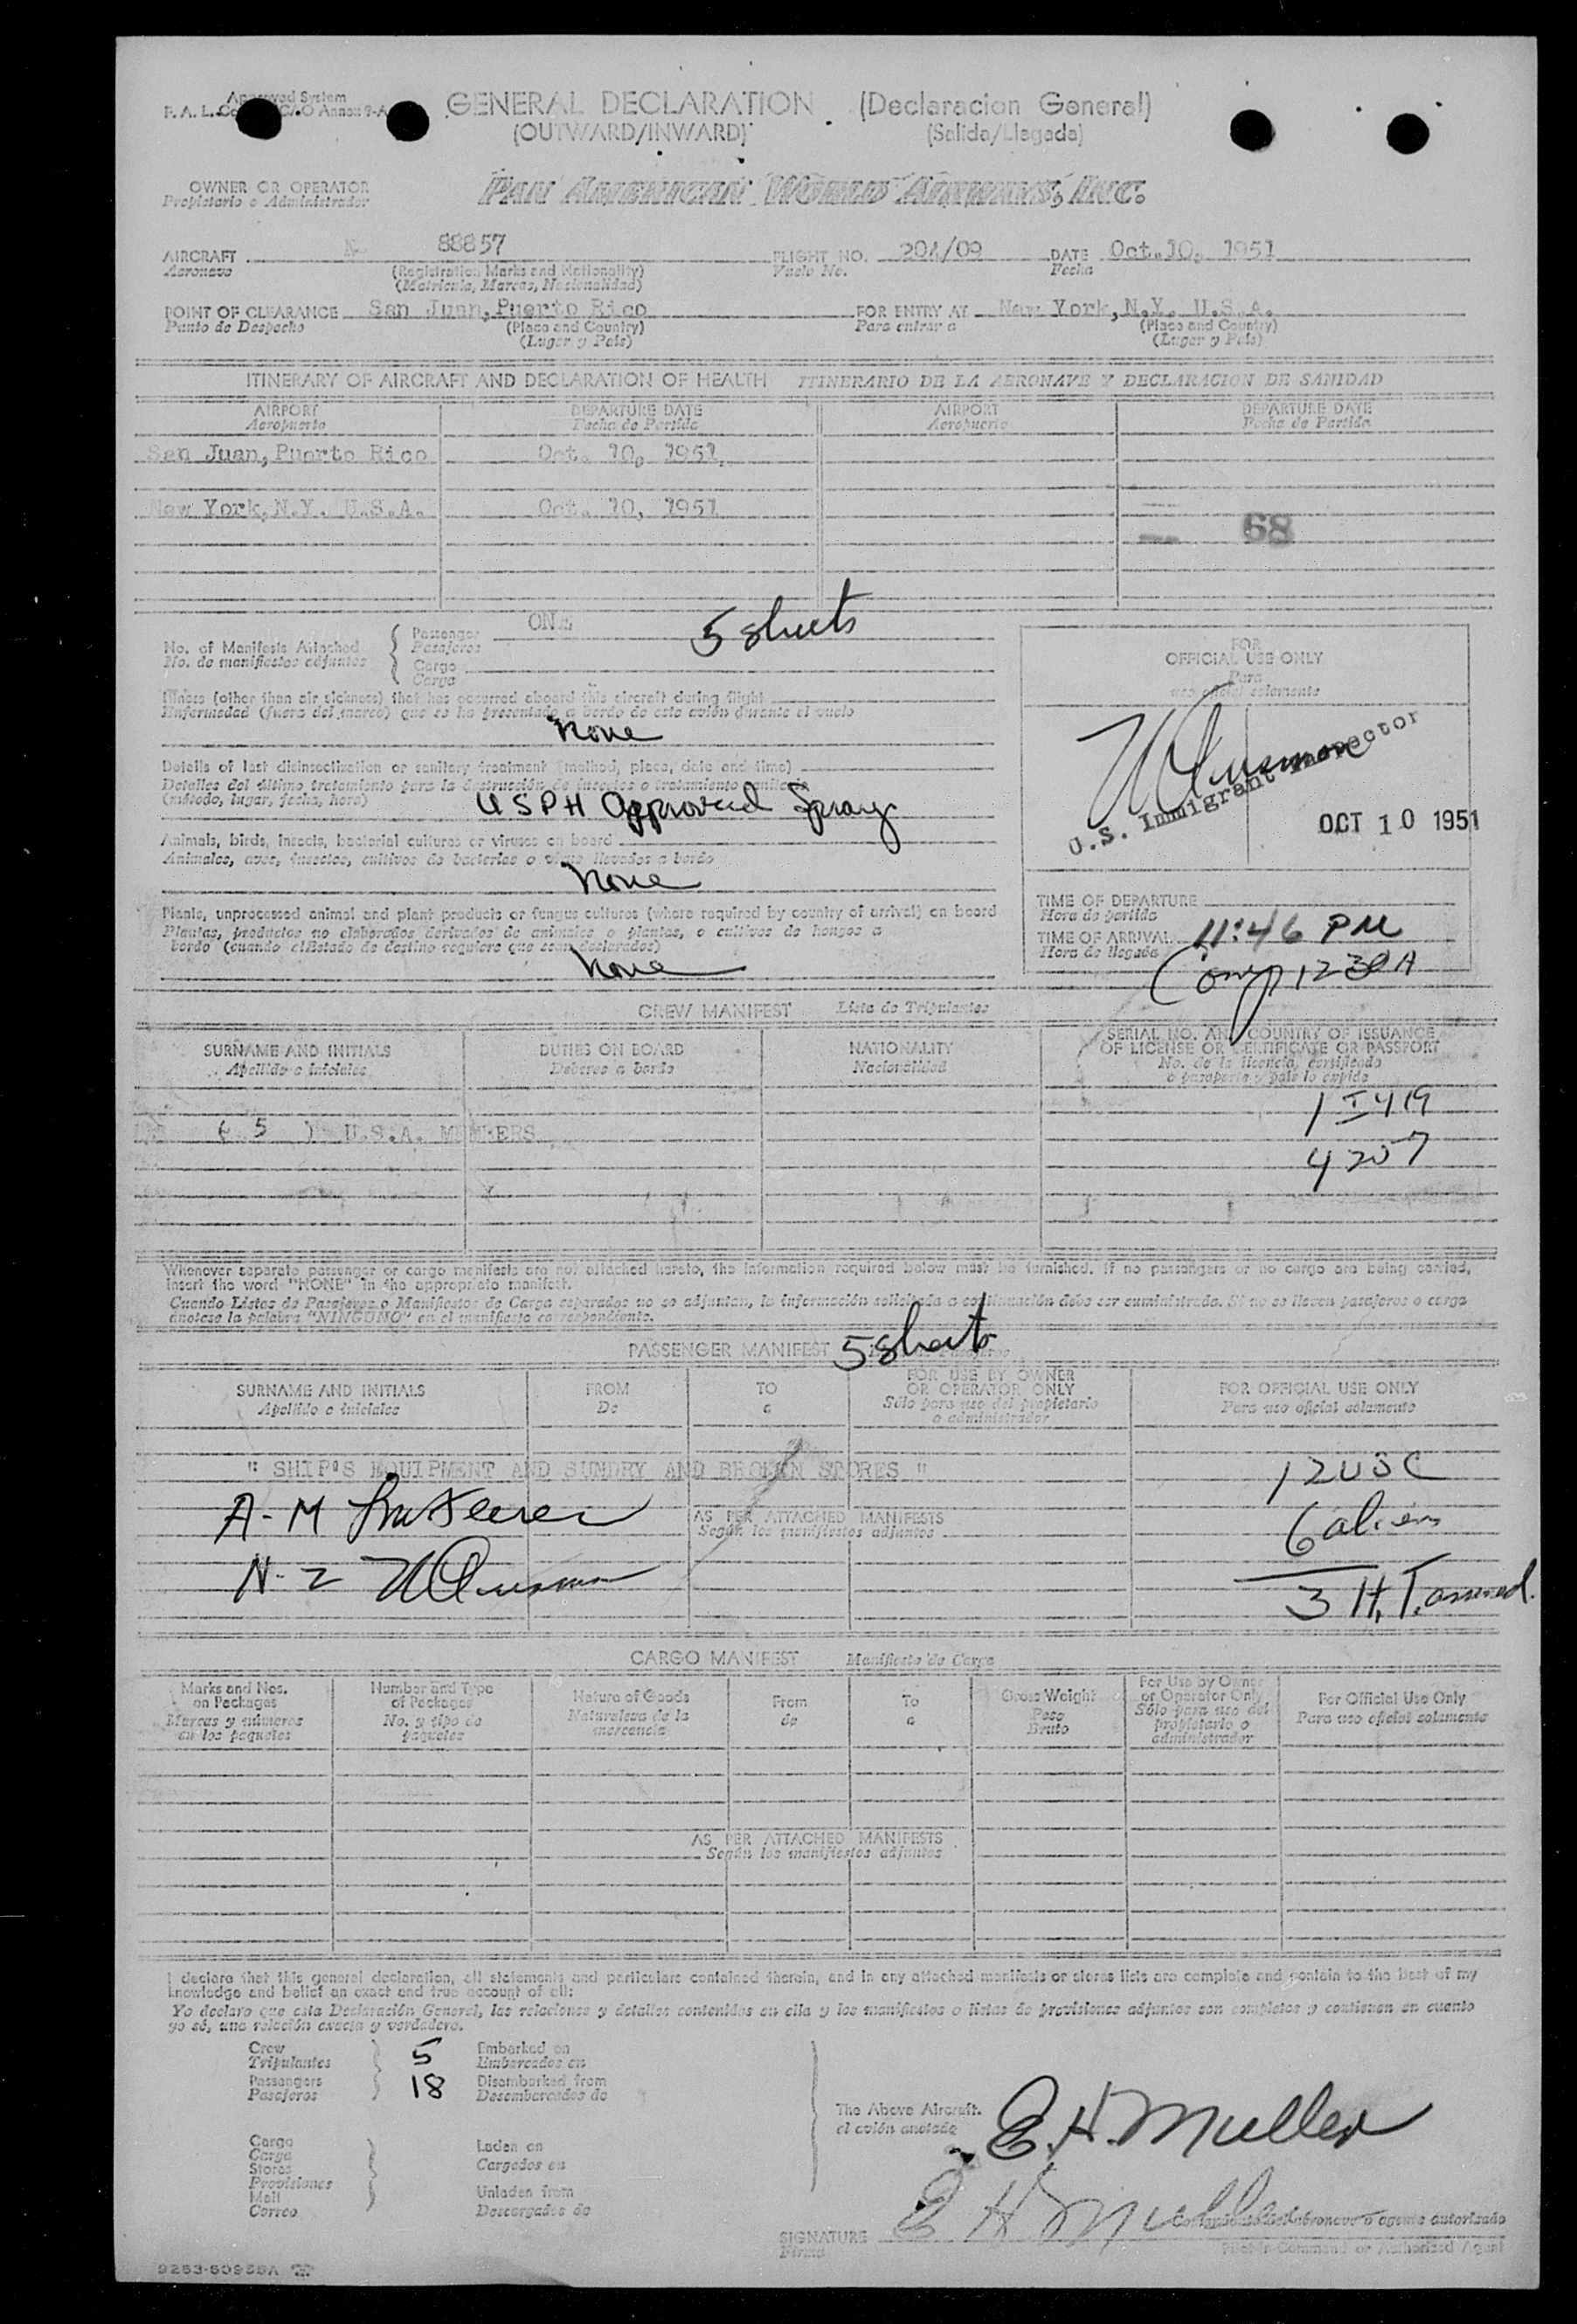 Approved System
GENERAL DECLARATION (Declaracion General)
(OUTWARD/INWARD) (Salida/Llegada)
OWNER OR OPERATOR
Propietario o Administrador
PAN AMERICAN WORLD AIRWAYS, INC.
AIRCRAFT N 88857 FLIGHT NO. 204/09 DATE Oct. 10, 1951
Aeronave (Registration Marks and Nationality) Vuelo No. Fecha
(Matricula, Marcas, Nacionalidad)
POINT OF CLEARANCE San Juan, Puerto Rico FOR ENTRY AT New York, N.Y. U.S.A.
Punto de Despacho (Place and Country) Para entrar a (Place and Country)
(Lugar y Pais) (Lugar y Pais)
ITINERARY OF AIRCRAFT AND DECLARATION OF HEALTH ITINERARIO DE LA AERONAVE Y DECLARACION DE SANIDAD
AIRPORT DEPARTURE DATE AIRPORT DEPARTURE DATE
Aeropuerto Fecha de Partida Aeropuerto Fecha de Partida
San Juan, Puerto Rico Oct. 10, 1951.
New York, N.Y. U.S.A. Oct. 10, 1951
68
No. of Manifests Attached Passenger ONE 5 sheets
No. de manifiestos adjuntos Pasajeros
Cargo
Carga
FOR
OFFICIAL USE ONLY
Para
uso oficial solamente
Illness (other than air sickness) that has occurred aboard this aircraft during flight
Enfermedad (fuera del mareo) que se ha presentado a bordo de este avión durante el vuelo
None
Details of last disinsectization or sanitary treatment (method, place, date and time)
Detalles del último tratamiento para la destrucción de insectos o tratamiento sanitario
(método, lugar, fecha, hora)
USPH Approved Spray
U.S. Immigrant Inspector
OCT 10 1951
Animals, birds, insects, bacterial cultures or viruses on board
Animales, aves, insectos, cultivos de bacterias o virus llevados a bordo
None
Plants, unprocessed animal and plant products or fungus cultures (where required by country of arrival) on board
Plantas, productos no elaborados derivados de animales o plantas, o cultivos de hongos a
bordo (cuando el Estado de destino requiere que sean declarados)
None
TIME OF DEPARTURE
Hora de partida
TIME OF ARRIVAL 11:46 PM
Hora de llegada
Comp 1230 A
CREW MANIFEST Lista de Tripulantes
SURNAME AND INITIALS DUTIES ON BOARD NATIONALITY SERIAL NO. AND COUNTRY OF ISSUANCE
OF LICENSE OR CERTIFICATE OR PASSPORT
Apellido e iniciales Deberes a bordo Nacionalidad No. de la licencia, certificado
o pasaporte y pais lo expide
1 I 419
( 5 ) U.S.A. MEMBERS
4 207
Whenever separate passenger or cargo manifests are not attached hereto, the information required below must be furnished. If no passengers or no cargo are being carried,
insert the word "NONE" in the appropriate manifest.
Cuando Listas de Pasajeros o Manifiestos de Carga separados no se adjuntan, la información solicitada a continuación debe ser suministrada. Si no se llevan pasajeros o carga
anótese la palabra "NINGUNO" en el manifiesto correspondiente.
PASSENGER MANIFEST 5 sheets
SURNAME AND INITIALS FROM TO FOR USE BY OWNER
OR OPERATOR ONLY FOR OFFICIAL USE ONLY
Apellido e iniciales De a Sólo para uso del propietario
o administrador Para uso oficial solamente
" SHIP'S EQUIPMENT AND SUNDRY AND BROKEN STORES " 12 USC
A-M
AS PER ATTACHED MANIFESTS
Según los manifiestos adjuntos
6 aliens
N-Z
3 H.T.
CARGO MANIFEST Manifiesto de Carga
Marks and Nos.
on Packages
Marcas y números
en los paquetes
Number and Type
of Packages
No. y tipo de
paquetes
Nature of Goods
Naturaleza de la
mercancia
From
de
To
a
Gross Weight
Peso
Bruto
For Use by Owner
or Operator Only
Sólo para uso del
propietario o
administrador
For Official Use Only
Para uso oficial solamente
AS PER ATTACHED MANIFESTS
Según los manifiestos adjuntos
I declare that this general declaration, all statements and particulars contained therein, and in any attached manifests or stores lists are complete and contain to the best of my
knowledge and belief an exact and true account of all:
Yo declaro que esta Declaración General, las relaciones y detalles contenidos en ella y los manifiestos o listas de provisiones adjuntos son completos y contienen en cuanto
yo sé, una relación exacta y verdadera.
Crew 5 Embarked on
Tripulantes Embarcados en
Passengers 18 Disembarked from
Pasajeros Desembarcados de
The Above Aircraft.
el avión anotado
E.H. Muller
Cargo
Carga
Stores
Provisiones
Mail
Correo
Laden on
Cargados en
Unladen from
Descargados de
SIGNATURE E H Muller
Firma
o agente autorizado
Pilot in Command or Authorized Agent